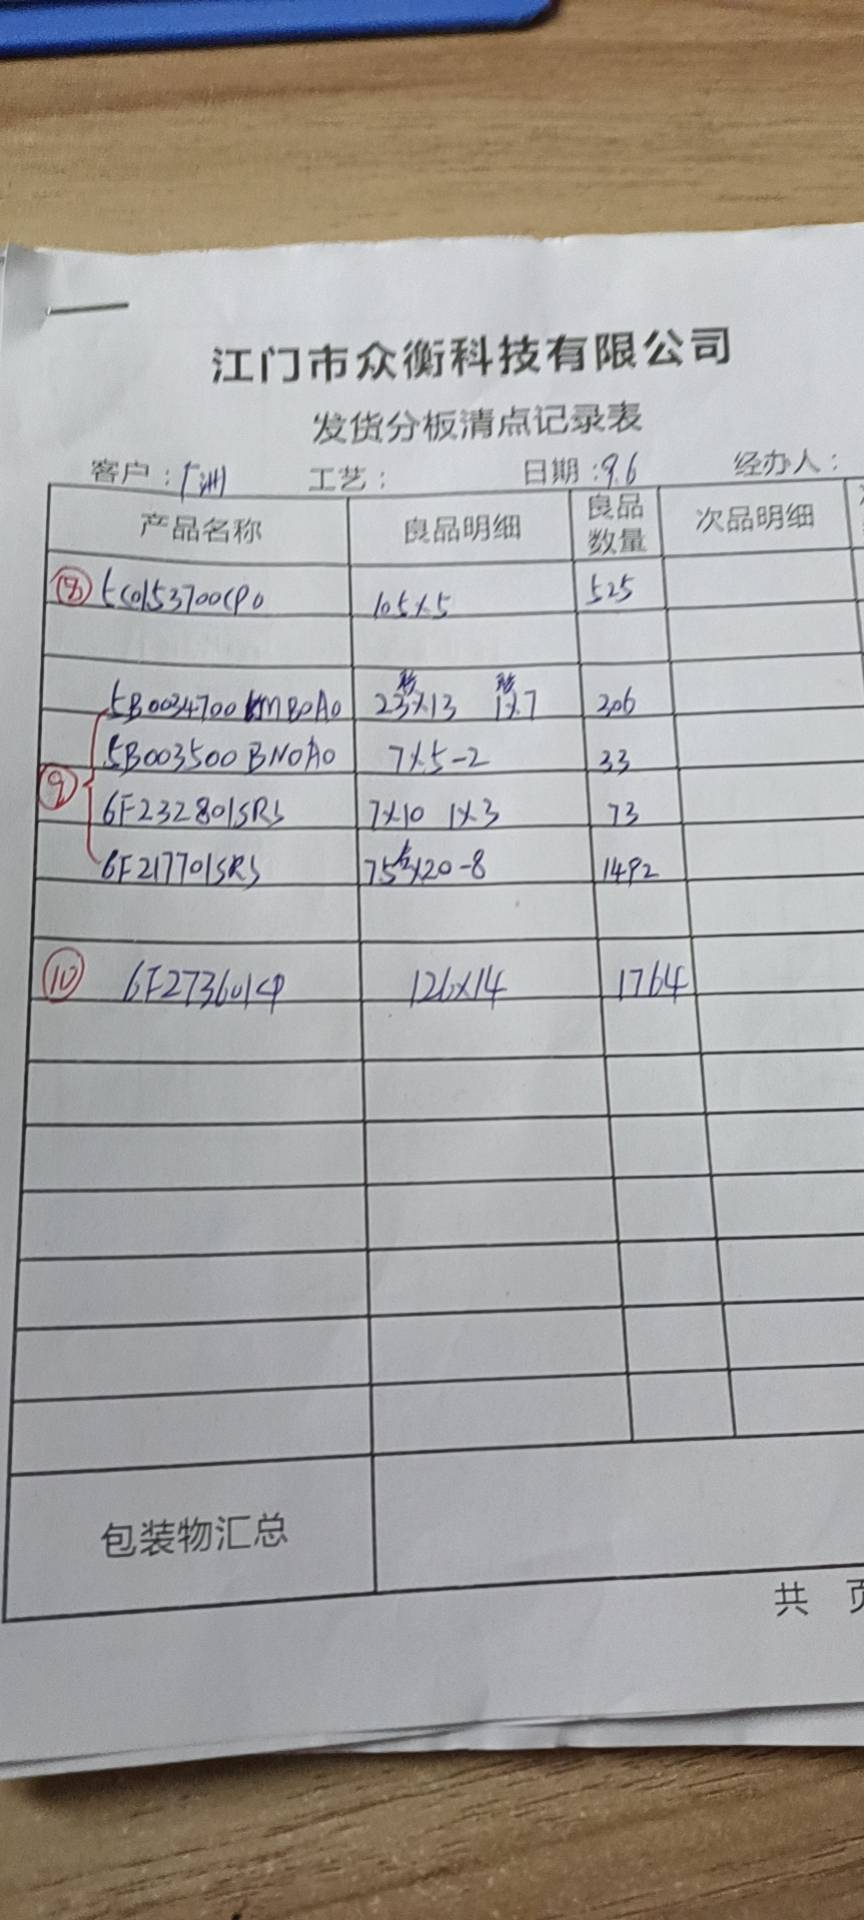 江门市众衡科技有限公司
发货分板清点记录表
客户：广洲 工艺： 日期：9.6 经办人：
产品名称 良品明细 良品数量 次品明细
5C0153700CP0 105×5 525
5B0034700 MB0A0 23×13 1×7 306
5B003500BN0A0 7×5-2 33
⑨ 6F232801SRS 7×10 1×3 73
6F217701SRS 75×20-8 1492
⑩ 6F273601CP 126×14 1764
包装物汇总
共 页